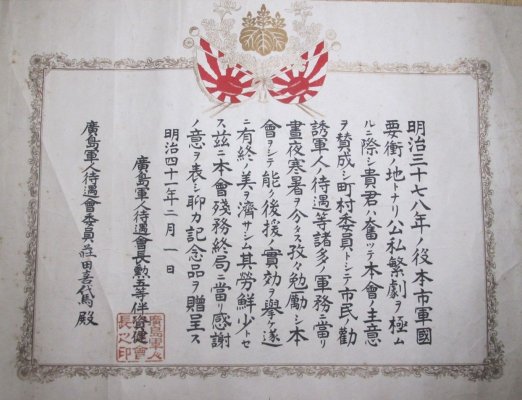 明治三十七八年ノ役本市軍國
要衝ノ地トナリ公私繁劇ヲ極ム
ルニ際シ貴君ハ奮ツテ本會ノ主意
ヲ賛成シ町村委員トシテ市民勸
誘軍人ノ待遇等諸多ノ軍務ニ當リ
晝夜寒暑ヲ分タス孜々勉勵シ本
會ヲシテ能ク後援ノ實効ヲ擧ケ遂
ニ有終ノ美ヲ濟サシム其勞鮮少トセ
ス玆ニ本會殘務終局ニ當リ感謝
ノ意ヲ表シ聊カ記念品ヲ贈呈ス
明治四十一年二月一日
廣島軍人待遇會長勲五等伴資健
廣島軍人待遇會委員 田喜代馬殿
廣島軍人
會長之印